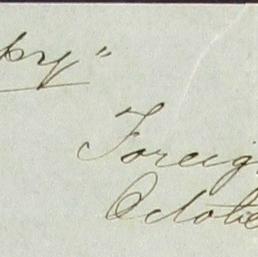 py"
Foreig
Octobe